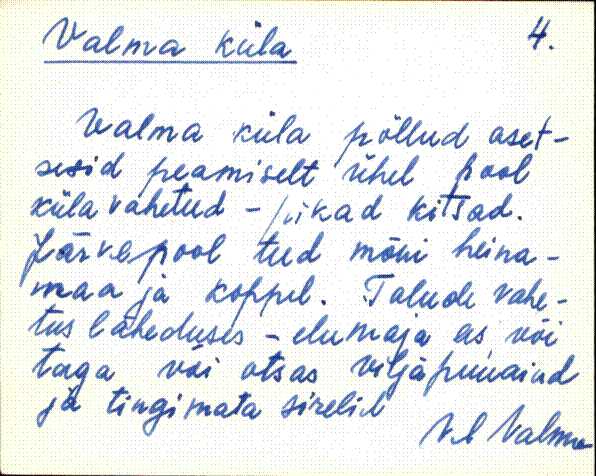 Valma küla 4.
Valma küla põllud aset-
sesid peamiselt ühel pool
küla vahetud - pikad kitsad.
Järvepool tud mõni heina-
maa ja koppel. Talude vahe-
tus läheduses - elumaja ees või
taga või otsas viljapuuaiad
ja tingimata sirelid
Valma